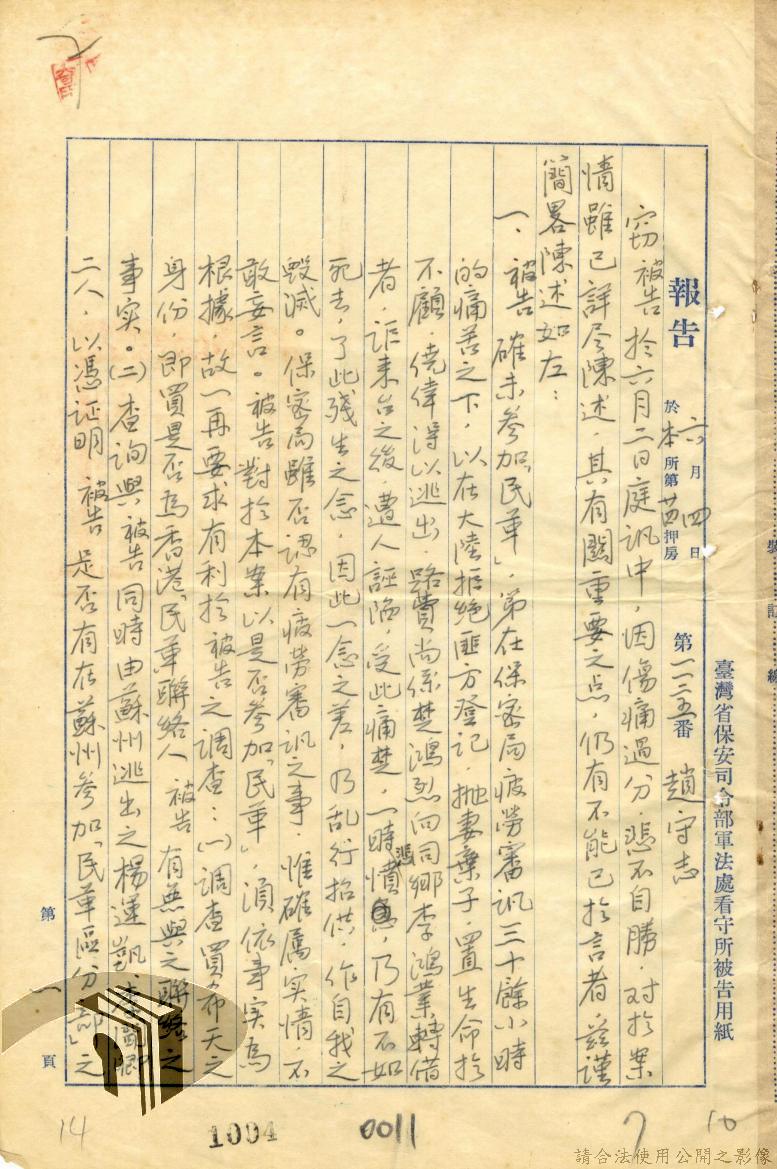 臺灣省保安司令部軍法處看守所被告用紙
報告 於六月四日 本所第廿四押房 第一一二五番 趙守志
竊被告於六月二日庭訊中，因傷痛過分，悲不自勝，对於案
情雖已詳尽陳述，其有關重要之点，仍有不能已於言者，茲謹
簡畧陳述如左：
一、被告確未参加「民革」，第在保密局疲勞審訊三十餘小時
的痛苦之下，以在大陸拒絕匪方登記，拋妻棄子，置生命於
不顧，僥倖得以逃出，路費尚係楚鴻烈向同鄉李鴻業轉借
者，詎来台之後，遭人誣陷，受此痛楚，一時憤悲，乃有不如
死去，了此殘生之念，因此一念之差，乃乱行招供，作自我之
毀滅。保密局雖否認有疲勞審訊之事，惟確属实情，不
敢妄言。被告對於本案以是否参加「民革」，須依事实為
根據，故一再要求有利於被告之調查：(一)調查買希天之
身份，即買是否為香港「民革」聯絡人，被告有無與之聯絡之
事实。(二)查詢與被告同時由蘇州逃出之楊運凱、李
二人，以憑证明被告是否有在蘇州参加「民革區分部」之
第一頁
裝訂線
14
1004
0011
7
10
請合法使用公開之影像